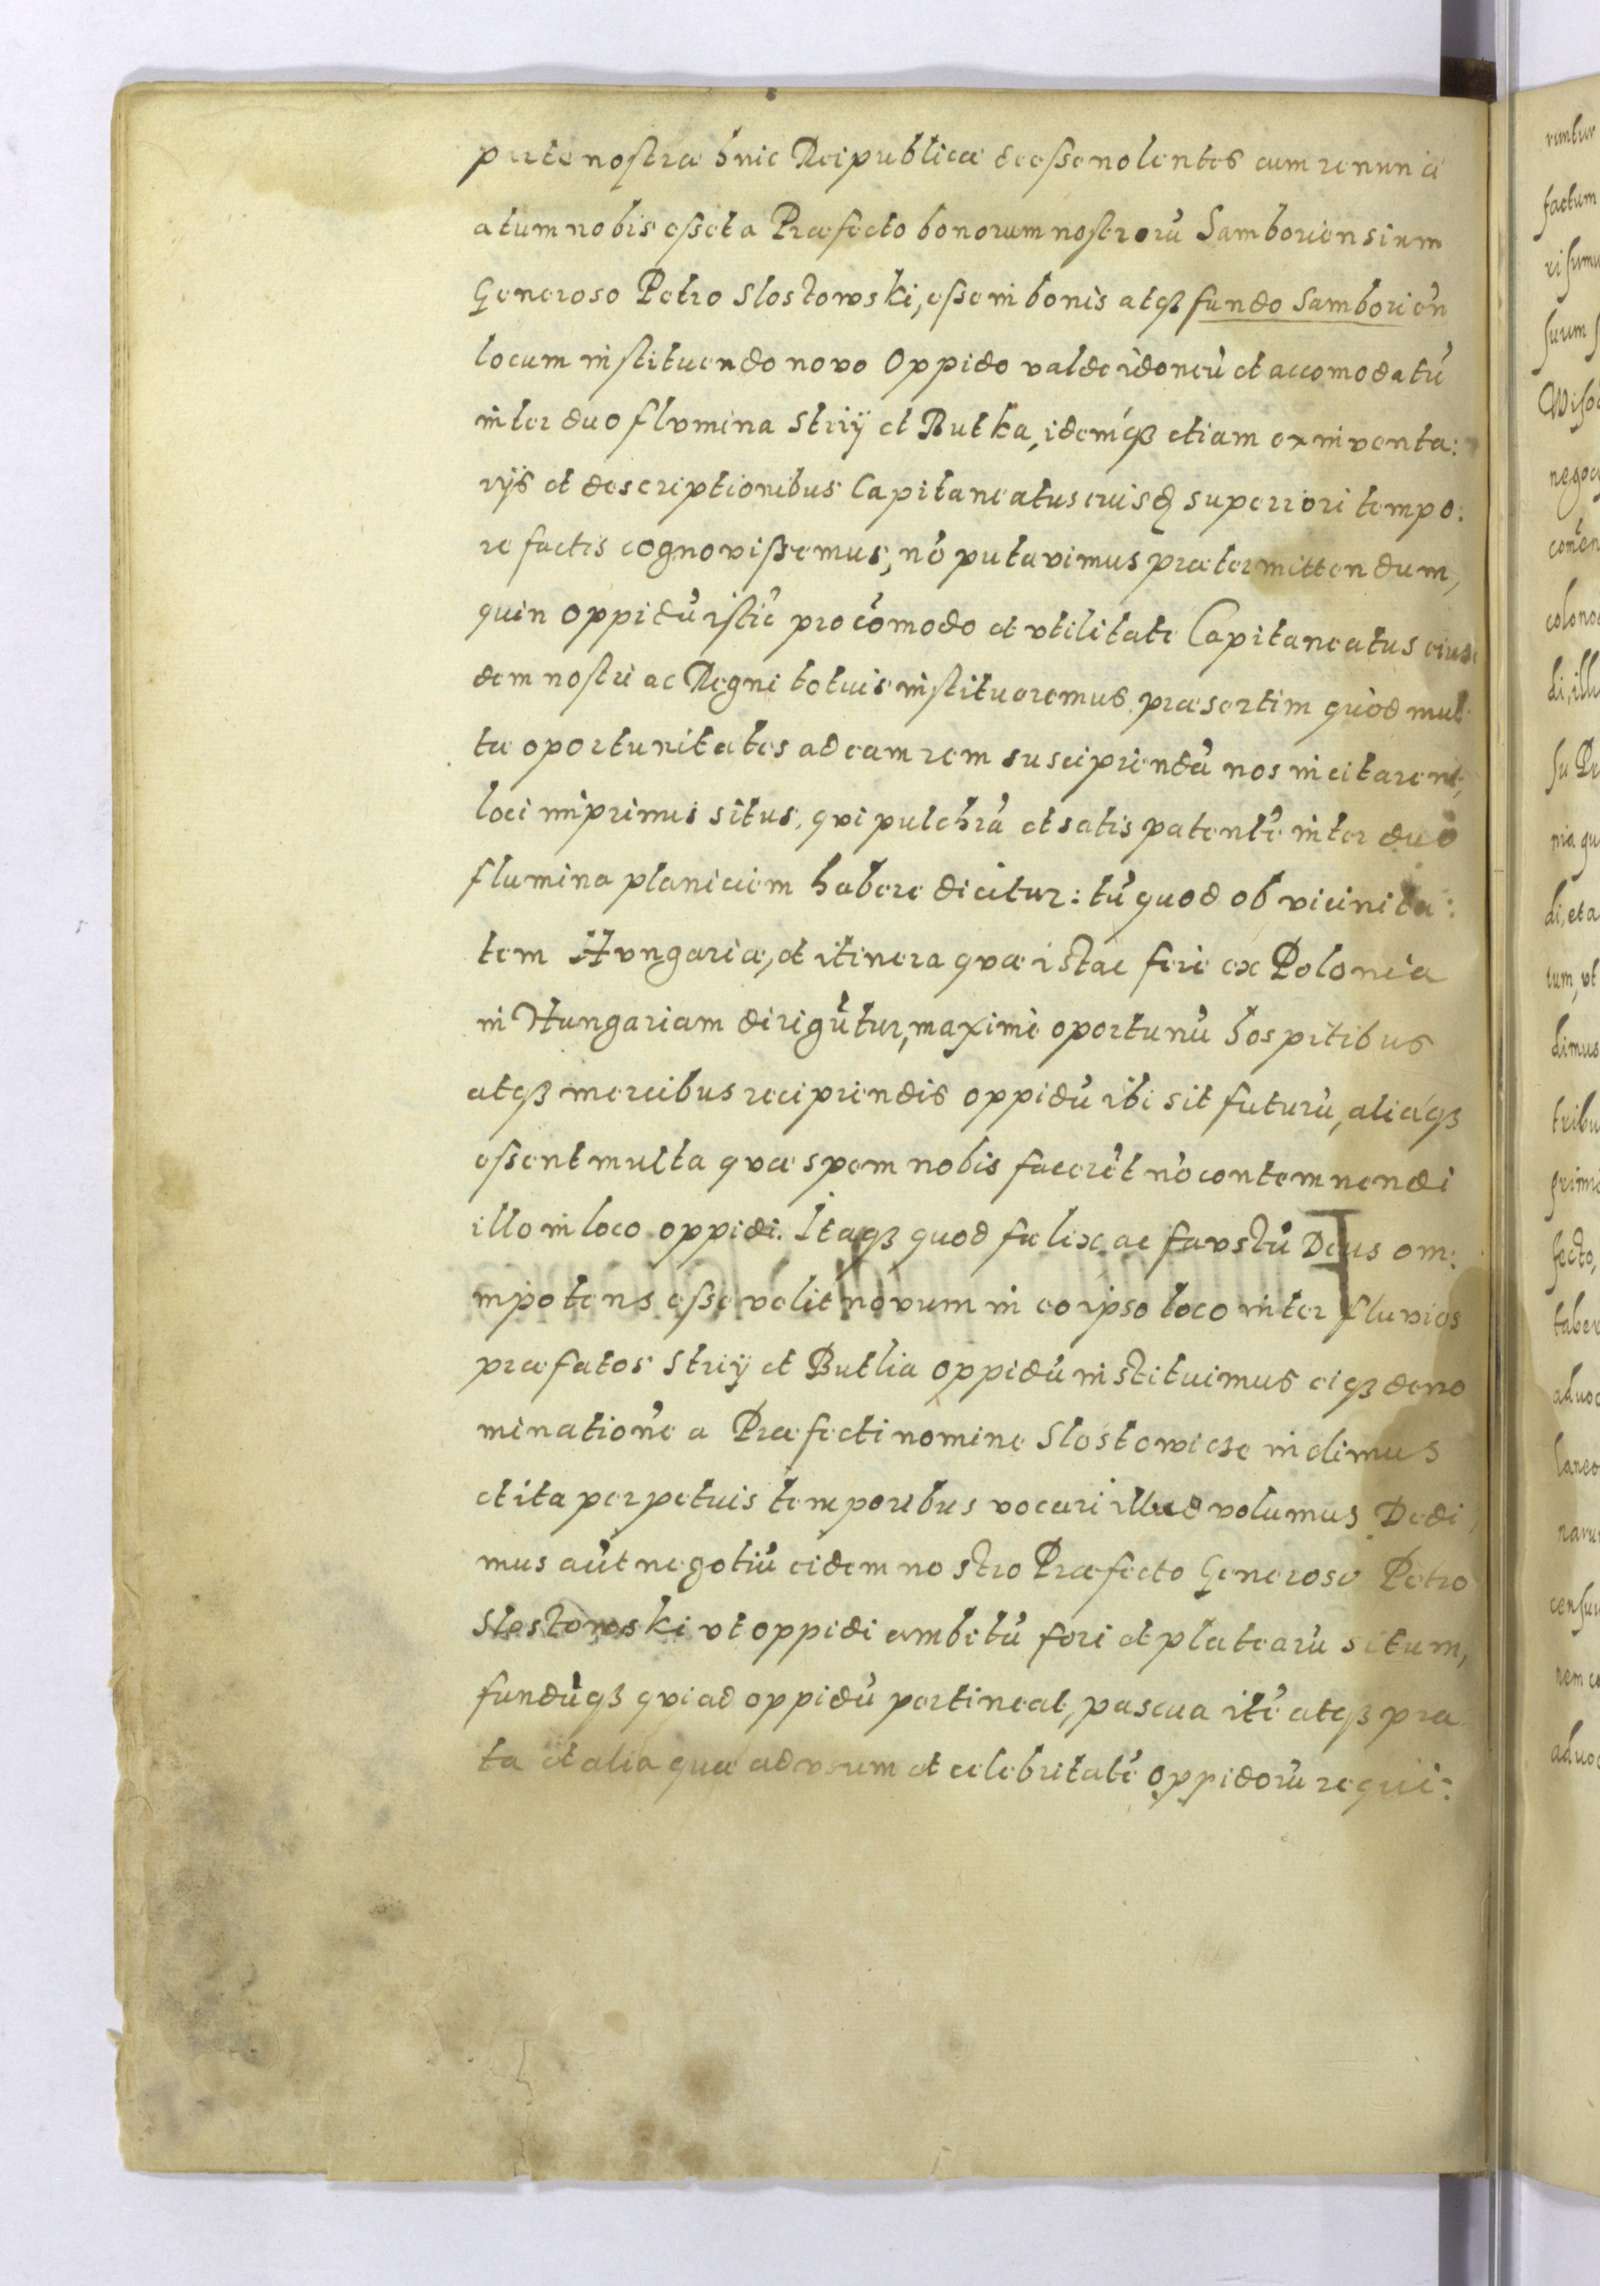 parte nostra huic Reipublicæ deesse nolentes cum renunci
atum nobis esset a Præfecto bonorum nostrorũ Samboriensium
Generoso Petro Slostowski, esse in bonis atqȝ fundo Samborien̄
locum instituendo novo Oppido valde idoneũ et accomodatũ
inter duo flvmina Strij et Butka, idemqȝ etiam ex inventa:
rijs et descriptionibus Capitaneatus eiusd superiori tempo:
re factis cognovissemus, nõ putavimus prætermittendum,
quin oppidũ istic pro cõmodo et vtilitate Capitaneatus eius:
dem nostri ac Regni totius institueremus, præsertim quòd mul
tæ oportunitates ad eam rem suscipiendã nos incitarent,
loci imprimis situs, qvi pulchrã et satis patentẽ inter duo
flumina planiciem habere dicitur: tũ quod ob vicinita:
tem Hvngariæ, et itinera qvæ istac fere ex Polonia
in Hungariam dirigũtur, maximè oportunũ hospitibus
atqȝ mercibus recipiendis oppidũ ibi sit futurũ, aliaqȝ
essent multa qvæ spem nobis facerẽt nõ contemnendi
illo in loco oppidi. Itaqȝ quod fælix ac favstũ Deus om:
nipotens esse velit novum in eo ipso loco inter fluvios
præfatos Strij et Butlia oppidũ instituimus eiqȝ deno
minationẽ a Præfecti nomine Slostowicze indimus
et ita perpetuis temporibus vocari illud volumus Dedi
mus aũt negotiũ eidem nostro Præfecto Generoso Petro
Slostowski vt oppidi ambitũ fori et platearũ situm,
fundũqȝ qvi ad oppidũ pertineat, pascua itẽ atqȝ pra
ta et alia quæ ad vsum et celebritatẽ oppidorũ requi:
rimtur
factum
suum
negoc
colono
di, illu
nia qu
di, et a
tum, vt
dimus
tribu
fecto,
taber
advoc
laneo
censu
nem co
advoc